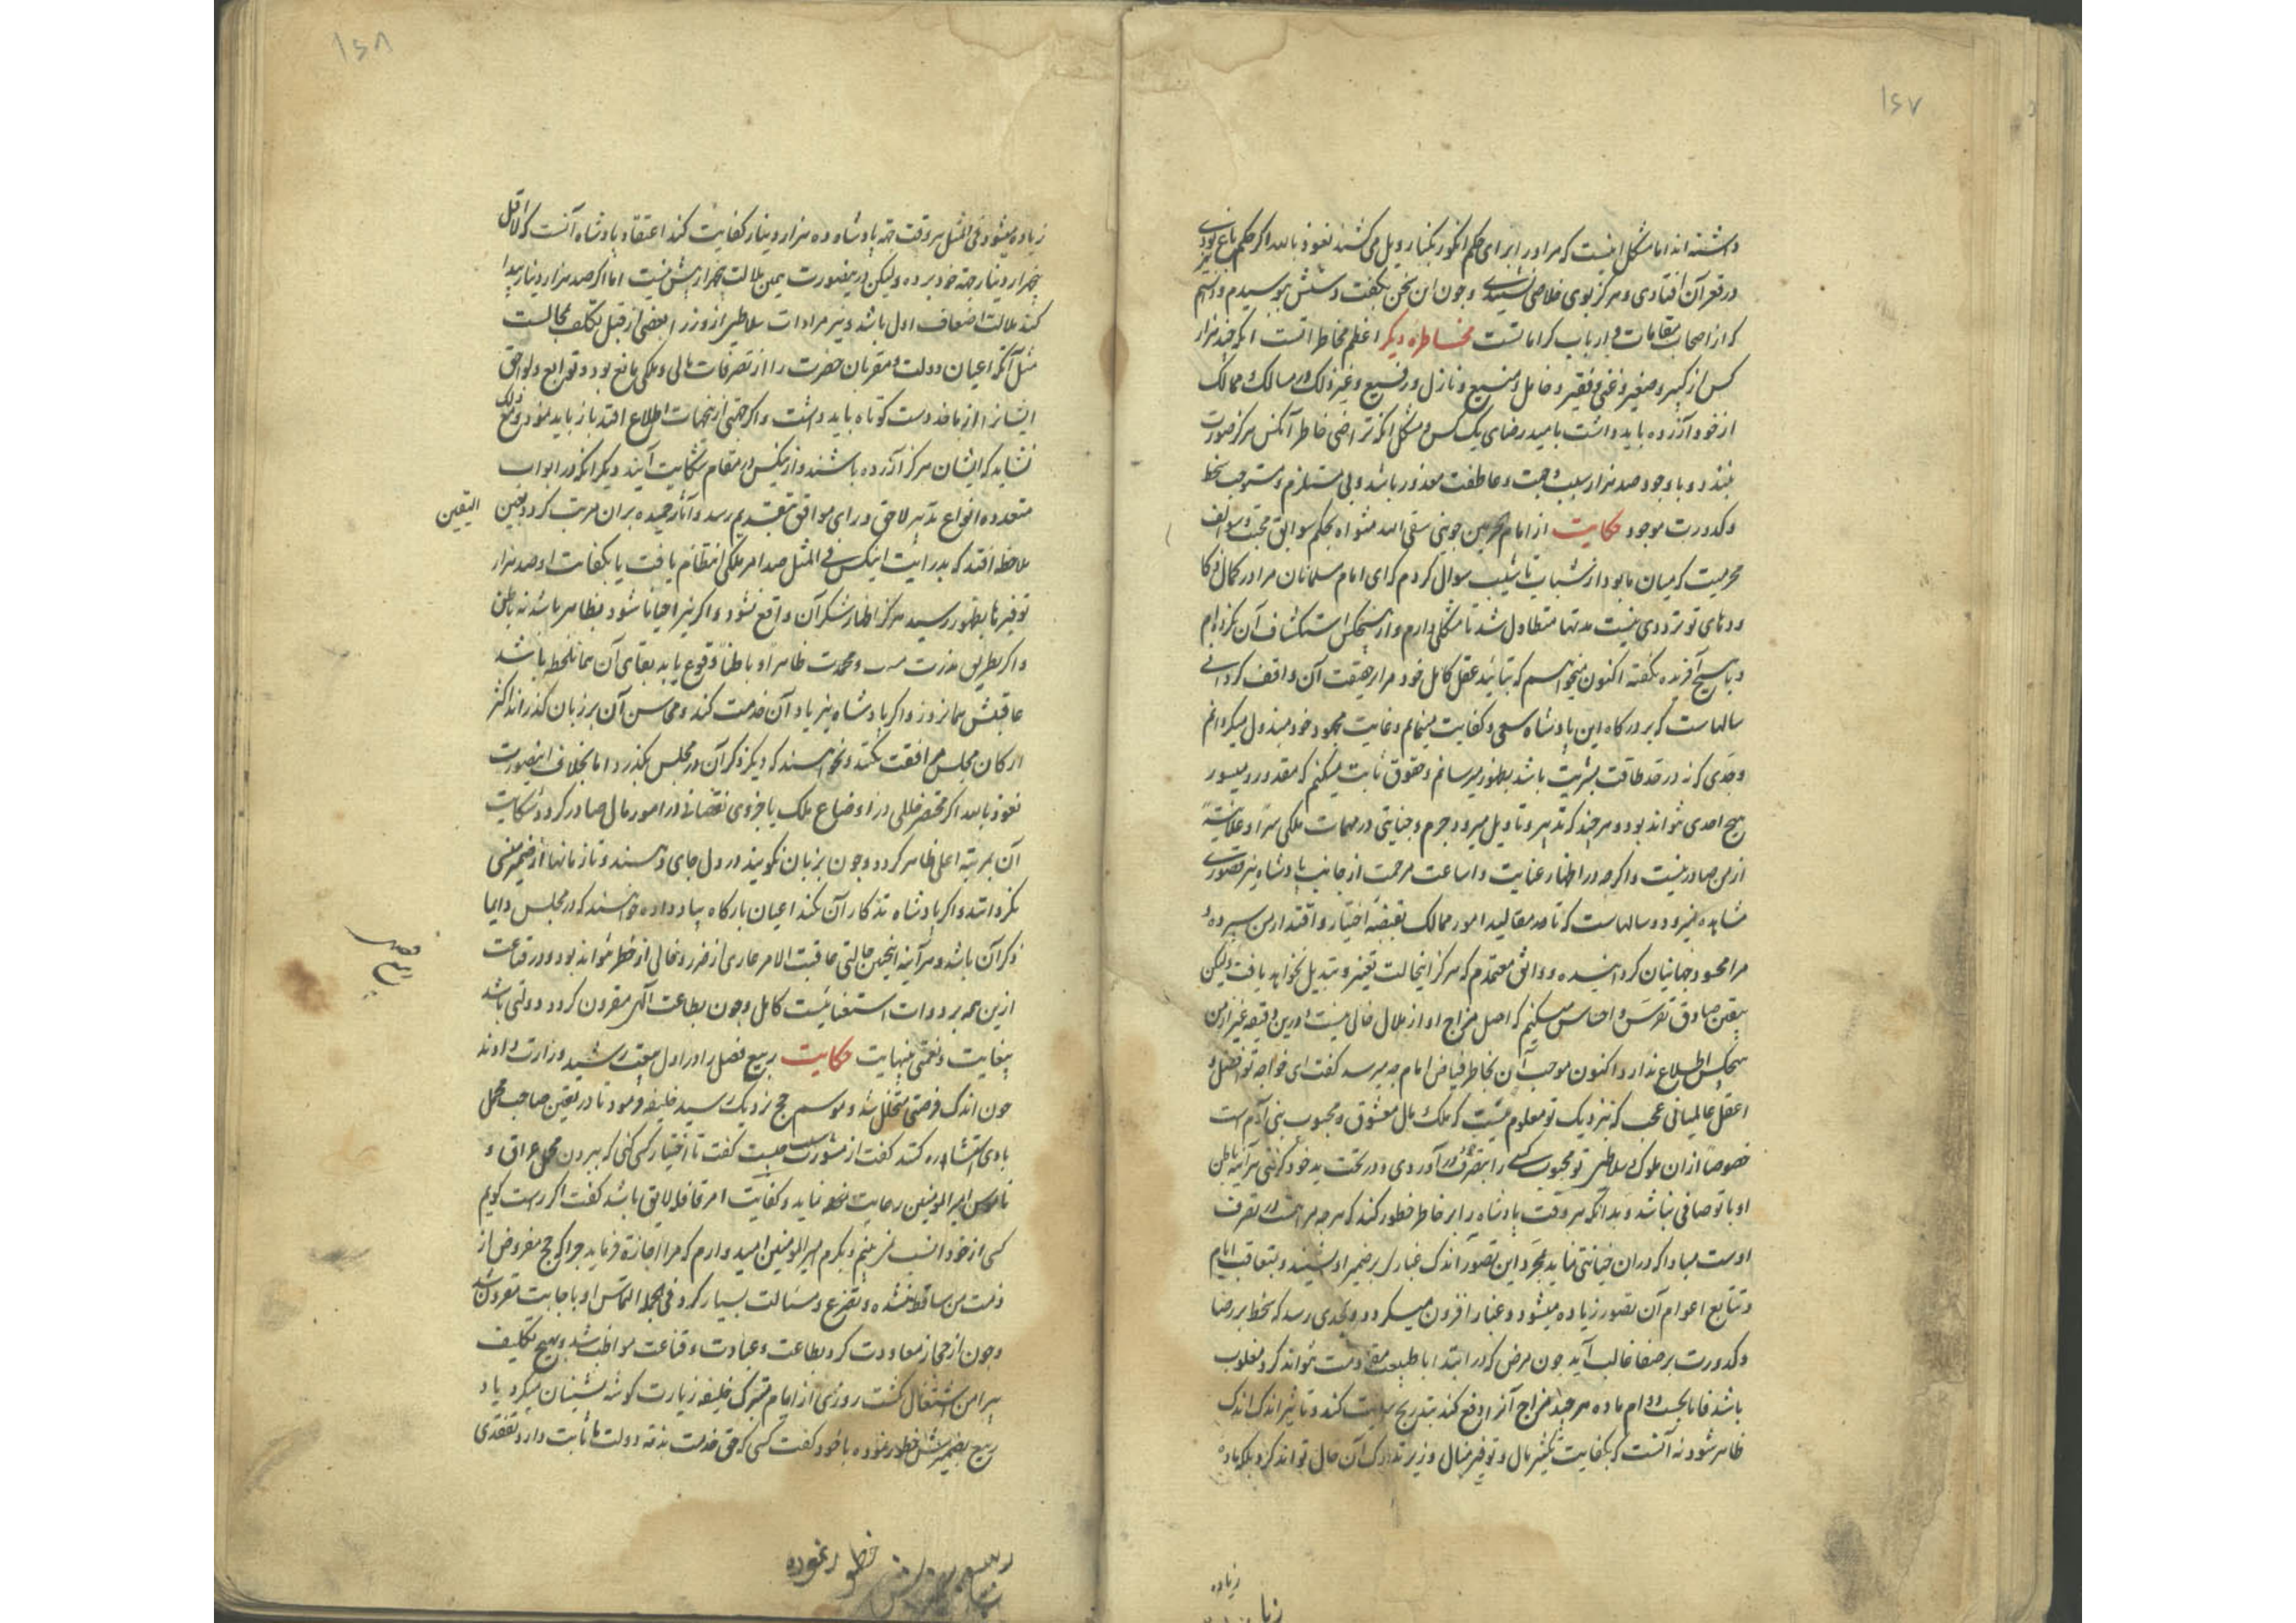 ۱۶۷
داشته اند اما مشکل اینست که مرا در برابر ای حکم انکور بکنار ویل می کشند نعوذ بالله اگر حکم باغ بودی
در قعر آن افتادی و هرگز بوی خلاصی نشنیدی و چون این سخن بگفت دستش ببوسیدم و دانستم
که از اصحاب مقامات و ارباب کراماتست مخاطره دیگر اعظم مخاطر آنست که چند هزار
کس از کبیر و صغیر و غنی و فقیر و خامل و منیع و نازل و رفیع و غیر ذلک در مسالک ممالک
از خود آزرده باید داشت بامید رضای یک کس و مشکل آنکه تراضی خاطر آنکس هرگز صورت
نبندد و با وجود صد هزار سبب و جهت و عاطفت معذور باشد و بی مستلزم و مستوجب سخط
و کدورت موجود حکایت از امام حرمین جوینی سقی الله مثواه بحکم سوابق محبت و سوالف
محرمیت که میان ما بود از شباب تا شیب سوال کردم که ای امام مسلمانان مرا در کمال ذکا
و دهای تو ترددی نیست مدتها متطاول شد تا مشکلی دارم و از هیچکس استکشاف آن نکرده ام
و با هیچ آفریده نگفته اکنون میخواهم که بتائید عقل کامل خود مرا بر حقیقت آن واقف گردانی
سالهاست که بر درکاه این پادشاه سعی و کفایت مینمایم و غایت مجهود خود مبذول میگردانم
و جدی که نه در حد طاقت بشریت باشد بظهور میرسانم و حقوق ثابت میکنم که مقدور و میسور
هیچ احدی نتواند بود و هر چند که تدبیر و تاویل میرود جرم و جنایتی در مهمات ملکی سرا و علانیة
از من صادر نیست و اگرچه در اظهار عنایت و اساعت مرحمت از جانب پادشاه نیز قصوری
مشاهده نمیرود و سالهاست که تا صد مقالید امور ممالک بقبضه اختیار و اقتدار من سپرده و
مرا محسود جهانیان گردانیده و واثق و معتمدم که هرگز اینحالت تغییر و تبدیل نخواهد یافت ولیکن
بیقین صادق تفرس و احساس میکنم که اصل مزاج او از ملال خالی نیست و برین دقیقه غیر از من
هیچکس اطلاع ندارد اکنون موجب آن بخاطر فیاض امام چه میرسد گفت ای خواجه تو افضل و
اعقل عالمیانی عجب که نزدیک تو معلوم نیست که ملک و مال معشوق و محبوب بنی آدم است
خصوصا از ان ملوک و سلاطین تو محبوب کسی را بتصرف در آوردی و در تحت ید خود گرفتی هر آینه باطن
او با تو صافی نباشد و بدانکه هر وقت پادشاه را بر خاطر خطور کند که هرچه مراست در تصرف
اوست مبادا که در ان خیانتی نماید بمجرد این تصور اندک غبار بر ضمیر او نشیند و بتعاقب ایام
و تتابع اعوام آن تصور زیاده میشود و غبار افزون میگردد و بحدی رسد که سخط بر رضا
و کدورت بر صفا غالب آید چون مرض که در ابتدا با طبیعت مقاومت نتواند کرد و مغلوب
باشد فاما بجهت دوام ماده هر چند مزاج آنرا دفع کند بتدریج سرایت کند و تاثیر اندک اندک
ظاهر شود نه آنست که بکفایت تکثیر مال و توفیر منال وزیر تدارک آن حال تواند کرد بلکه ماده
زیاده
۱۶۸
زیاده میشود فی المثل هر وقت جهة پادشاه ده هزار دینار کفایت کند اعتقاد پادشاه آنست که لا اقل
پنجهزار دینار جهة خود برده ولیکن درینصورت یمین ملالت پنجهزار بیش نیست اما اگر صد هزار دینار پیدا
کند ملالت اضعاف اول باشد و نیز مرادات سلاطین از وزرا بعضی از قبیل تکلف محالست
مثل آنکه اعیان دولت و مقربان حضرت را از تصرفات مالی و ملکی مانع بود و توابع و لواحق
ایشانرا از ماخذ دست کوتاه باید داشت و اگر حتی از تنجهات اطلاع افتد باز باید نمود و مع ذلک
نشاید که ایشان هرگز آزرده باشند و از ینکس در مقام شکایت آیند دیگر آنکه در ابواب
متعدده انواع تدبیر لاحق و رای موافق بتقدیم رسد و آثار حمیده بران مرتب گردد بعین
الیقین
ملاحظه افتد که بدرایت اینکس فی المثل صد امر ملکی انتظام یافت یا بکفایت او صد هزار
توفیرها بظهور رسید هرگز اظهار شکر آن واقع نشود و اگر نیز احیانا شود بظاهر باشد نه باطن
و اگر بطریق ندرت و محمدت ظاهرا و باطنا وقوع یابد بقای آن همان لحظه باشد
عاقبتش همانروز و اگر پادشاه نیز یاد آن خدمت کند و محاسن آن بر زبان گذراند اکثر
ارکان مجلس مرافقت نکنند و نخواهند که دیگر ذکر آن در مجلس بگذرد اما بخلاف اینصورت
نعوذ بالله اگر مختصر خللی در اوضاع ملک یا جزوی نقصانی در امور مال صادر گردد شکایت
آن بمرتبه اعلی ظاهر گردد و چون بزبان نگویند در دل جای دهند و تا زمانها از ضمیر منسی
نگردانند و اگر پادشاه تذکار آن نکند اعیان بارگاه بیاد داده خواهند که در مجلس دایما
ذکر آن باشد و هر آینه اینچنین حالتی عاقبت الامر عاری از ضرر و خالی از خطر نتواند بود و در قناعت
ازین همه برودات استغنائیست کامل و چون بطاعت الهی مقرون گردد دولتی باشد
بیغایت و نعمتی بینهایت حکایت ربیع فضل را در اول وقت رشید وزارت دادند
چون اندک فرصتی متخلل شد و موسم حج نزدیک رسید خلیفه فرمود تا در تعین صاحب محمل
با وی استشاره کنند گفت از مشورت چیست گفت تا اختیار کسی کنی که بیرون محمل عراق و
ناموس امیر المومنین رعایت نماید و کفایت امر قافله لایق باشد گفت اگر راست گویم
کسی از خود انسب نمی بینم و بکرم امیر المومنین امیدوارم که مرا اجازة فرماید چرا که حج مفروض از
ذمت من ساقط نشده و تضرع و مسالت بسیار کرد فی الجمله التماس او باجابت مقرون شد
و چون از حجاز معاودت کرد بطاعت و عبادت و قناعت مواظب شد و بهیچ تکلیف
پیرامن اشتغال نگشت روزی از ایام متبرک خلیفه زیارت گوشه نشینان میکرد یاد
ربیع بضمیرش خطور نموده با خود گفت کسی که حق خدمت بذمه دولت ما ثابت دارد تفقدی
خطور نموده